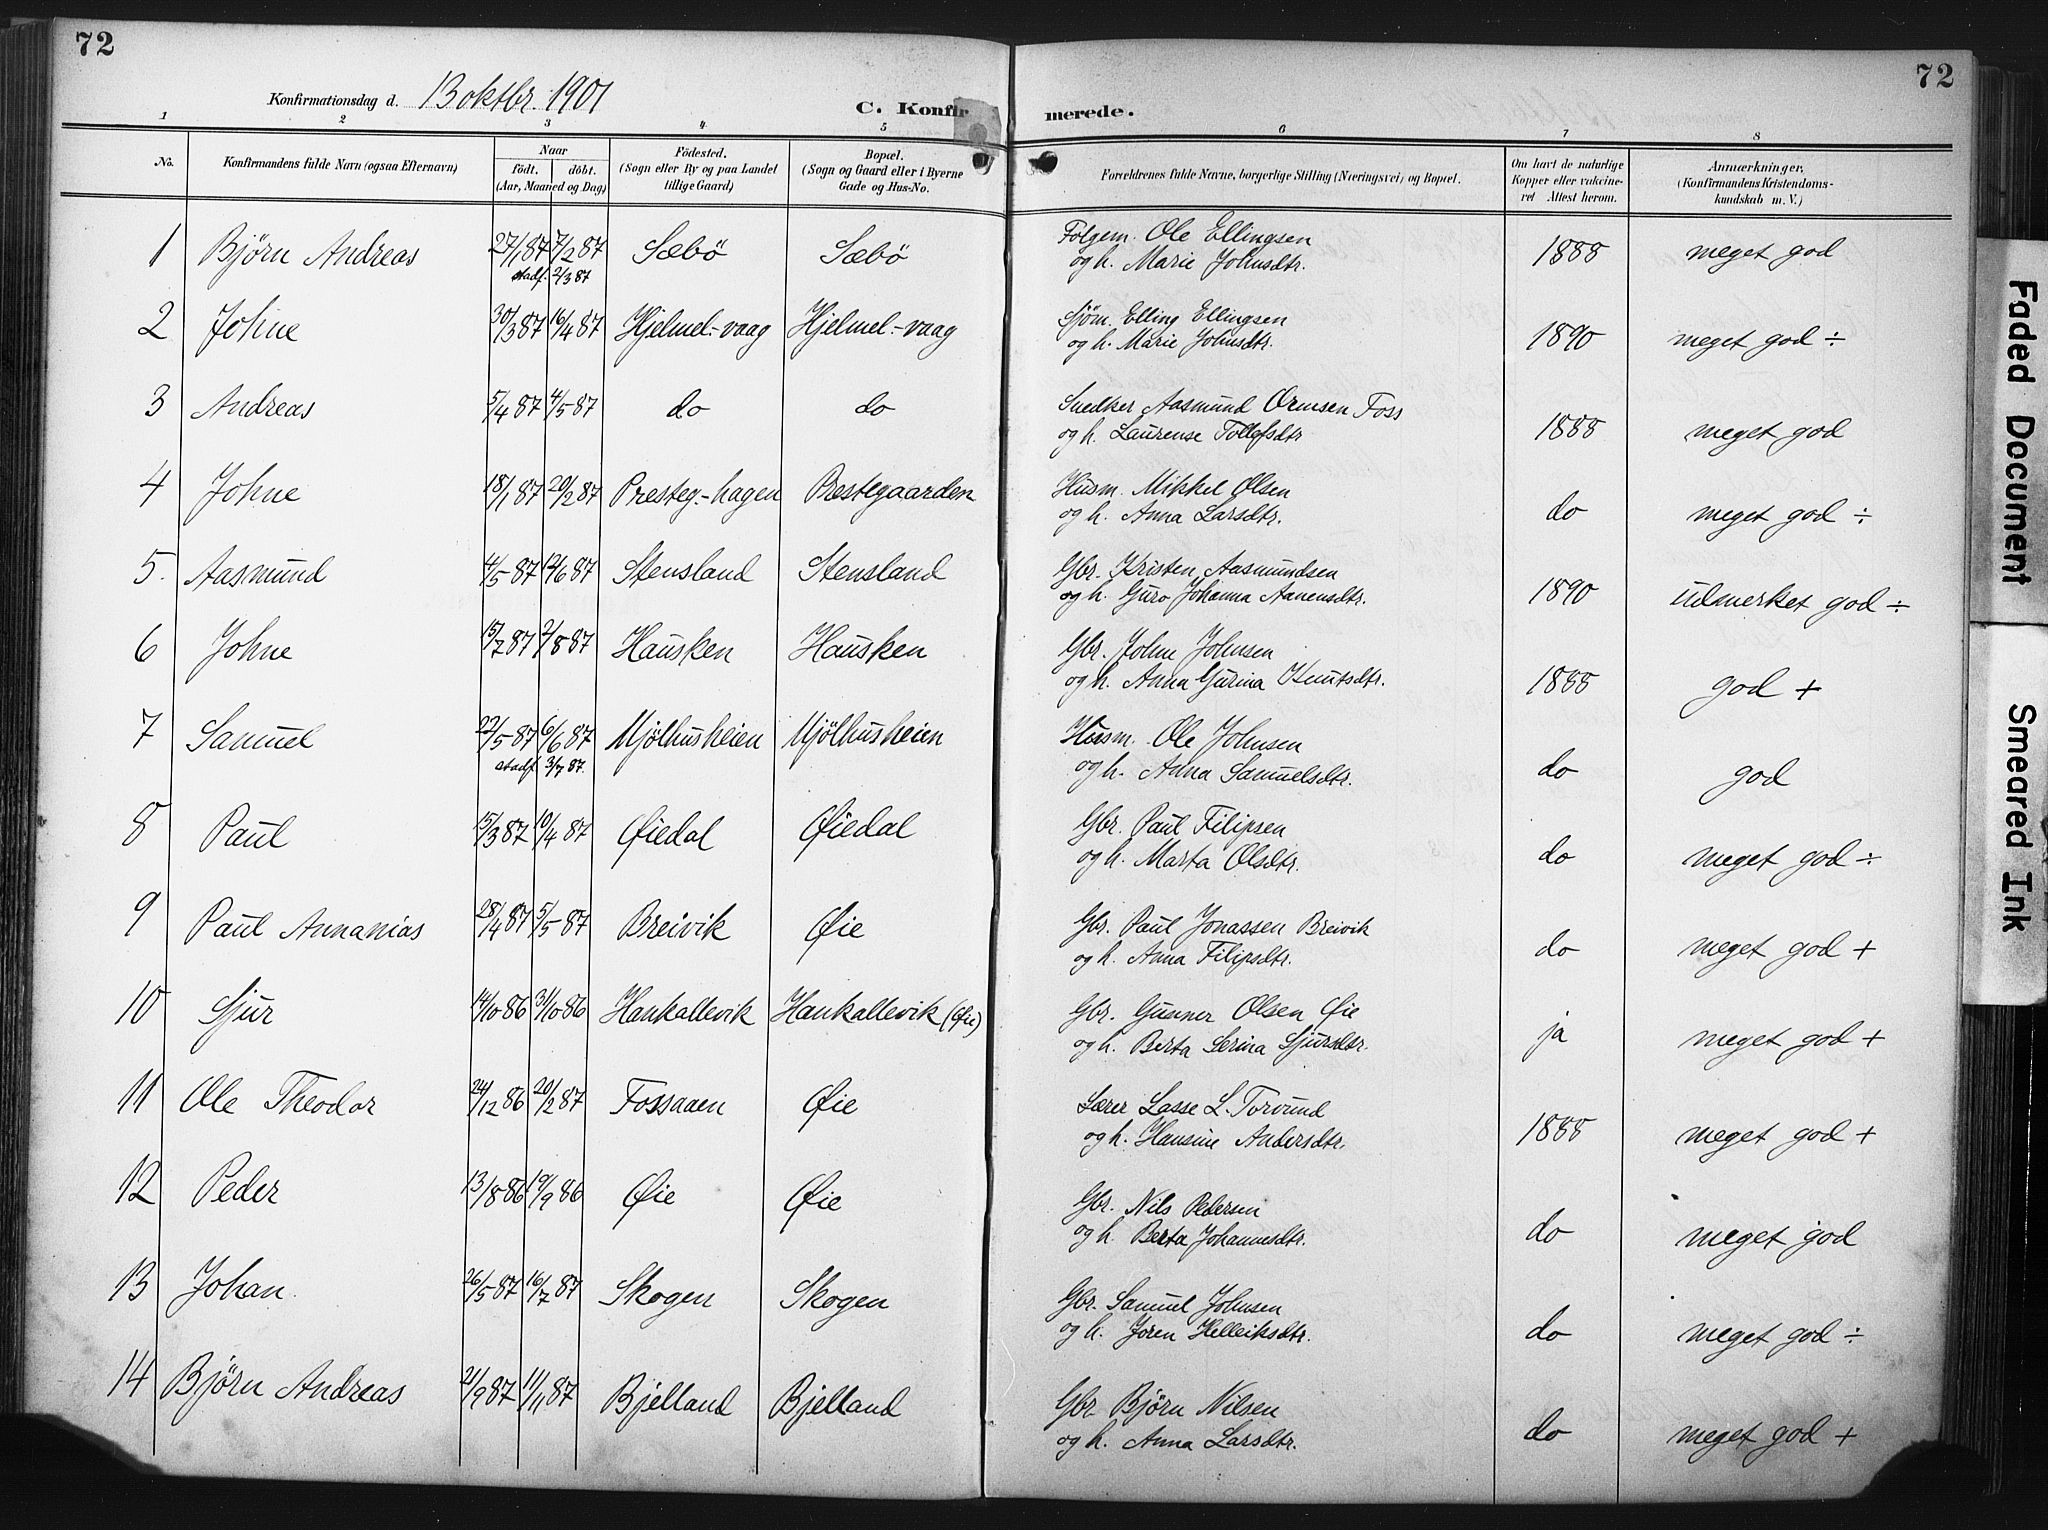 72
72
Konfirmationsdag d. 13 oktbr. 1901
C. Konfirmerede.
1 2 3 4 5 6 7 8
No.
Konfirmandens fulde Navn (ogsaa Efternavn)
Naar
født. døbt.
(Aar, Maaned og Dag)
Fødested.
(Sogn eller By og paa Landet
tillige Gaard)
Bopæl.
(Sogn og Gaard eller i Byerne
Gade og Hus-No.
Forældrenes fulde Navne, borgerlige Stilling (Næringsvei) og Bopæl.
Om havt de naturlige
Kopper eller vakcine-
ret Attest herom.
Anmærkninger,
(Konfirmandens Kristendoms-
kundskab m. V.)
1 Björn Andreas 27/1 87 7/2 87 Sæbö Sæbö Følgem. Ole Ellingsen 1888 meget god
stadf. 2/3 87 og h. Marie Johnsdtr.
2 Johne 30/3 87 16/4 87 Hjelmel-vaag Hjelmel-vaag Sjöm. Elling Ellingsen 1890 meget god ÷
og h. Marie Johnsdtr.
3 Andreas 5/4 87 4/5 87 do do Snedker Aasmund Ormsen Foss 1888 meget god
og h. Laurense Tollefsdtr
4 Johne 18/1 87 20/2 87 Presteg.-hagen Prestegaarden Husm. Mikkel Olsen do meget god ÷
og h. Anna Larsdtr.
5. Aasmund 4/5 87 12/6 87 Stensland Stensland Gbr. Kristen Aasmundsen 1890 udmerket god ÷
og h. Guro Johanna Aanensdtr.
6 Johne 15/7 87 2/8 87 Hausken Hausken Gbr. Johne Johnsen 1888 god +
og h. Anna Gurina Knutsdtr.
7 Samuel 22/5 87 6/6 87 Mjølhusheien Mjølhusheien Husm. Ole Johnsen do god
stadf. 3/7 87. og h. Anna Samuelsdtr.
8 Paul 15/3 87 10/4 87 Øiedal Øiedal Gbr. Paul Filipsen do meget god ÷
og h. Marta Olsdtr.
9 Paul Annanias 28/4 87 5/5 87 Breivik Øie Gbr. Paul Jonassen Breivik do meget god +
og h. Anna Filipsdtr.
10 Sjur 14/10 86 31/10 86 Hankallevik Hankallevik (Øie) Gbr. Gunner Olsen Øie ja meget god +
og h. Berta Serina Sjursdtr.
11 Ole Theodor 24/12 86 20/2 87 Fossaaen Øie Lærer Lasse L. Torvund 1888 meget god +
og h. Hansine Andersdtr.
12 Peder 13/8 86 19/9 86 Øie Øie Gbr. Nils Pedersen do meget god
og h. Berta Johannesdtr.
13 Johan 26/5 87 16/7 87 Skogen Skogen Gbr. Samuel Johnsen do meget god ÷
og h. Joren Helleiksdtr.
14 Björn Andreas 21/9 87 11/11 87 Bjelland Bjelland Gbr. Björn Nilsen do meget god +
og h. Anna Larsdtr.
Faded Document
Smeared Ink